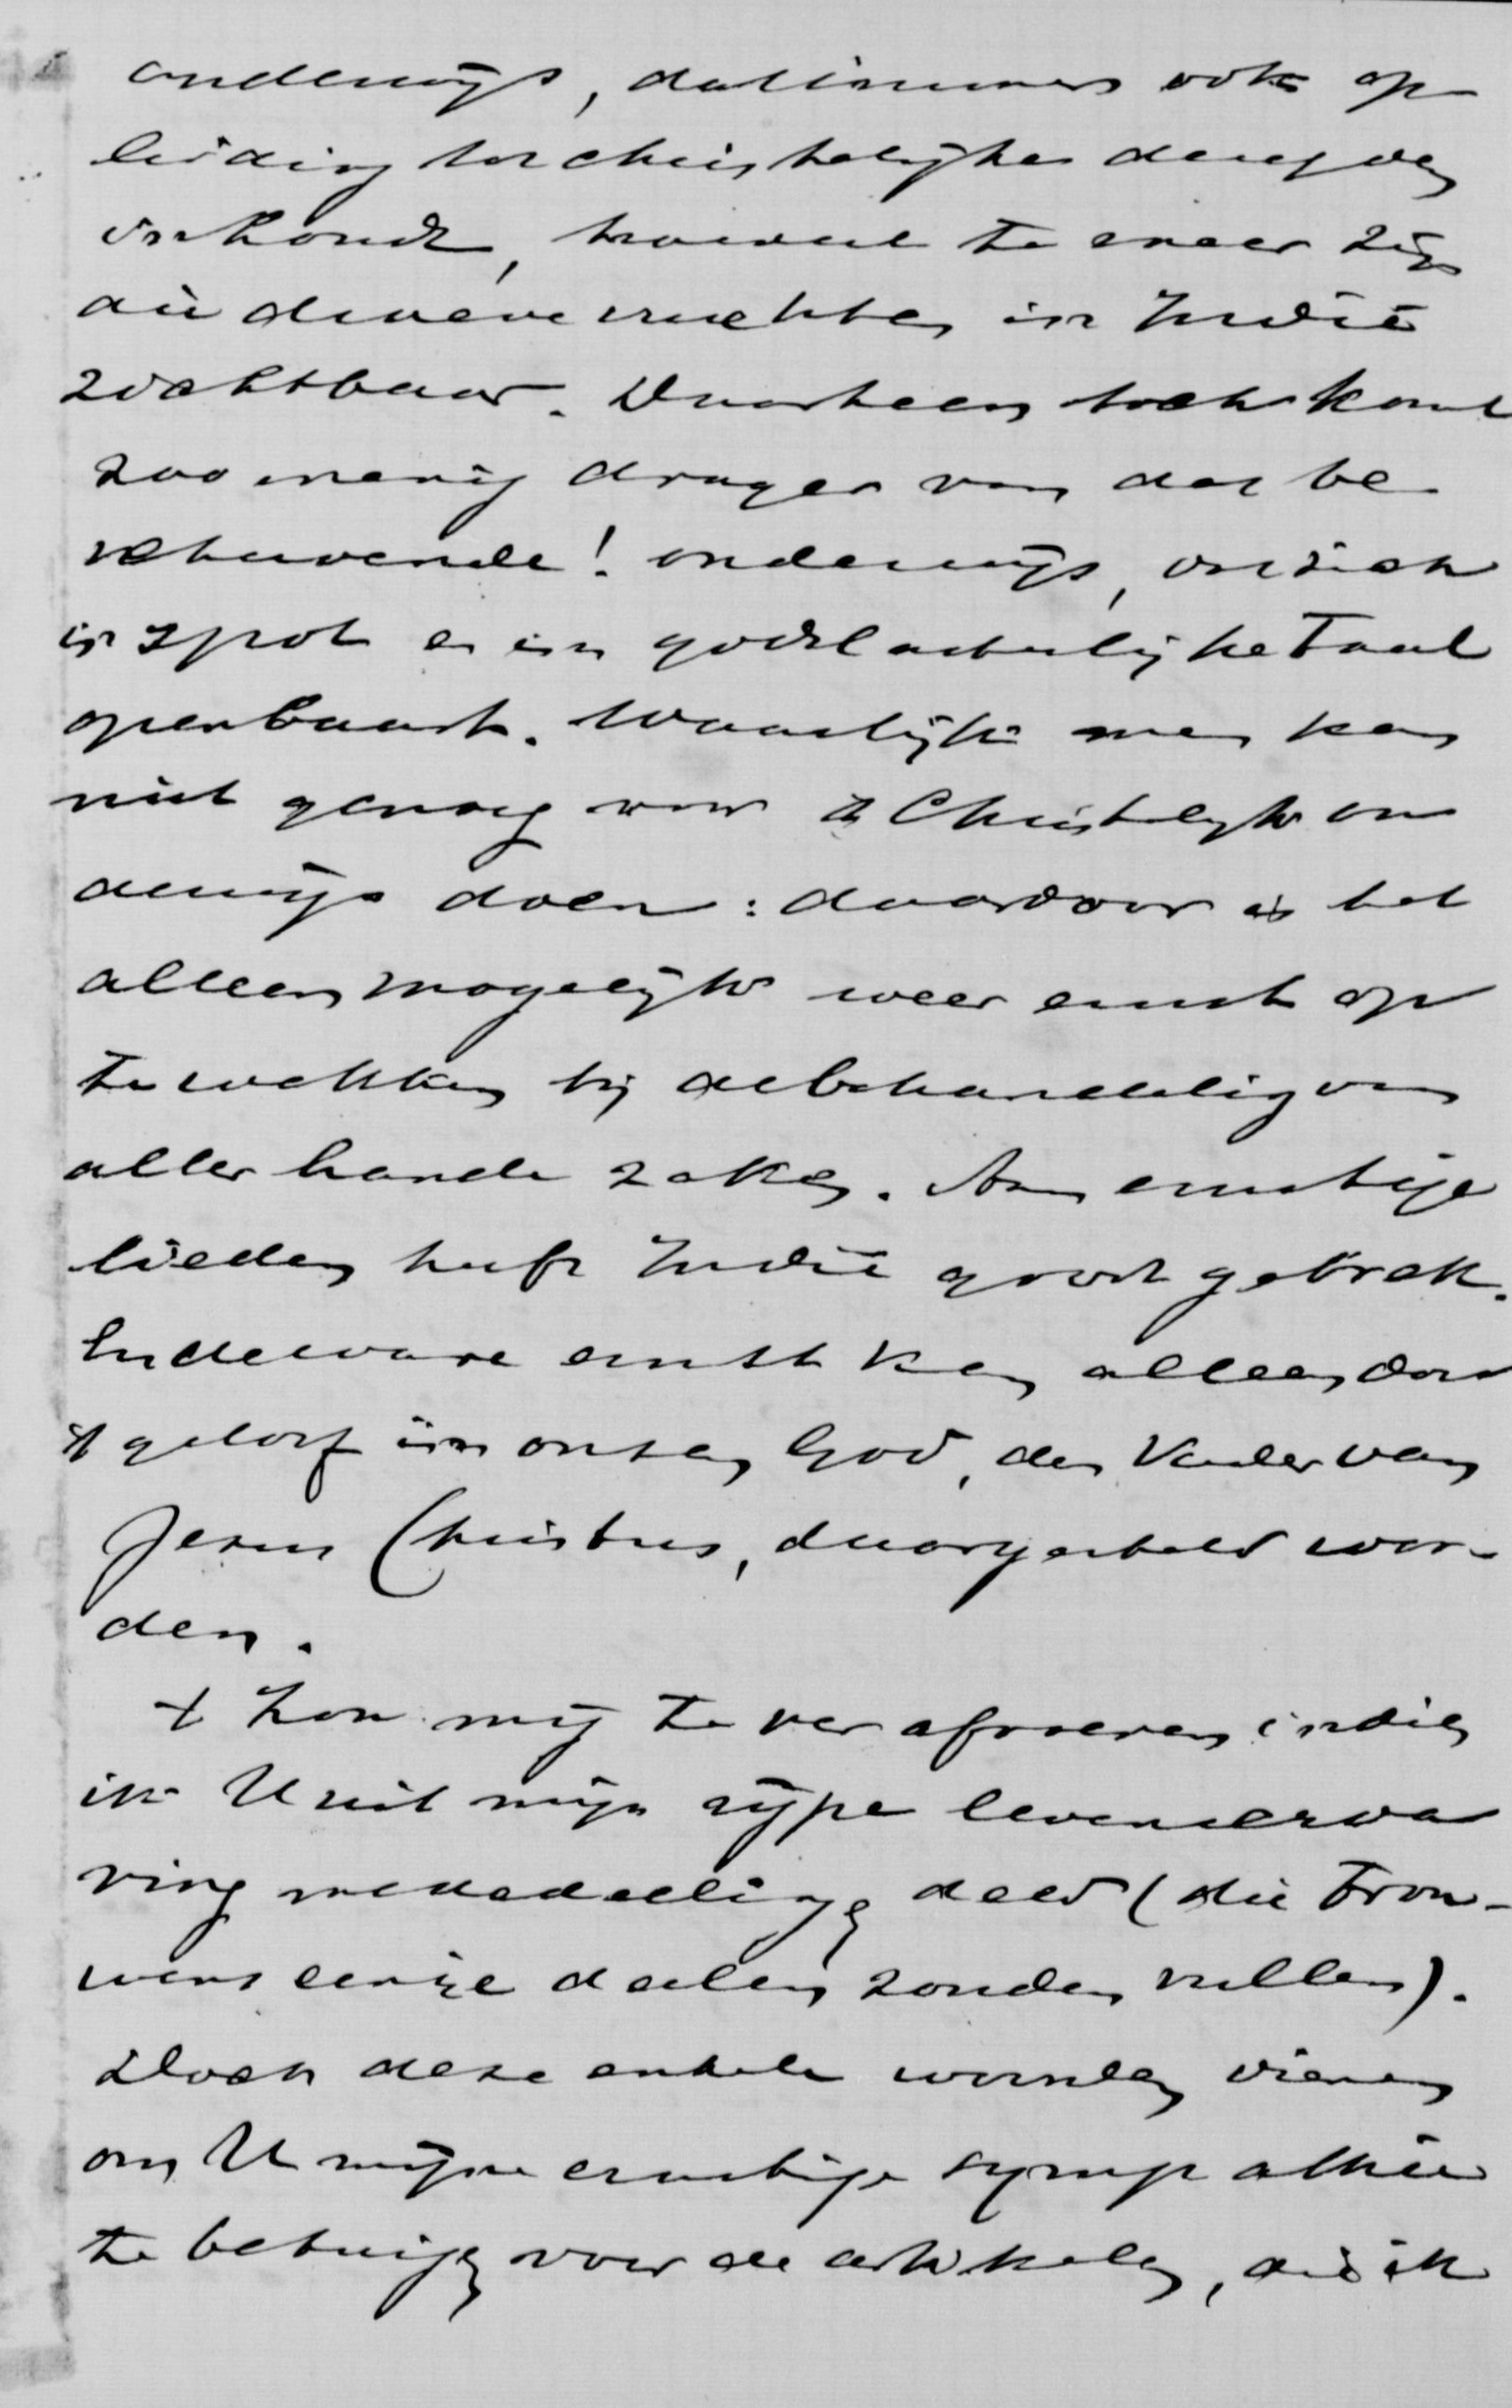 onderwijs, dat immers ook op
leiding tot christelijke deugden
inhoudt, hoeveel te meer zijn
die droeve vruchten in Indië
zichtbaar. Daarheen toch komt
zoo menig drager van dat be
schavende! onderwijs, dat zich
in spot en in godslasterlijke taal
openbaart. Waarlijk men kan
niet genoeg voor 't Christelijk on
derwijs doen: daardoor is het
alleen mogelijk weer ernst op
te wekken bij de behandeling van
aller hande zaken. Aan ernstige
lieden heeft Indië groot gebrek.
En de ware ernst kan alleen door
't geloof in onzen God, den Vader van
Jezus Christus, daargesteld wor-
den.
't Zou mij te ver afvoeren indien
ik U uit mijn rijpe levenserva
ring mededeelingen deed (die trou-
wens eenige deelen zouden vullen).
Doch deze enkele woorden dienen
om U mijne ernstige sympathie
te betuigen voor de artikelen, die ik